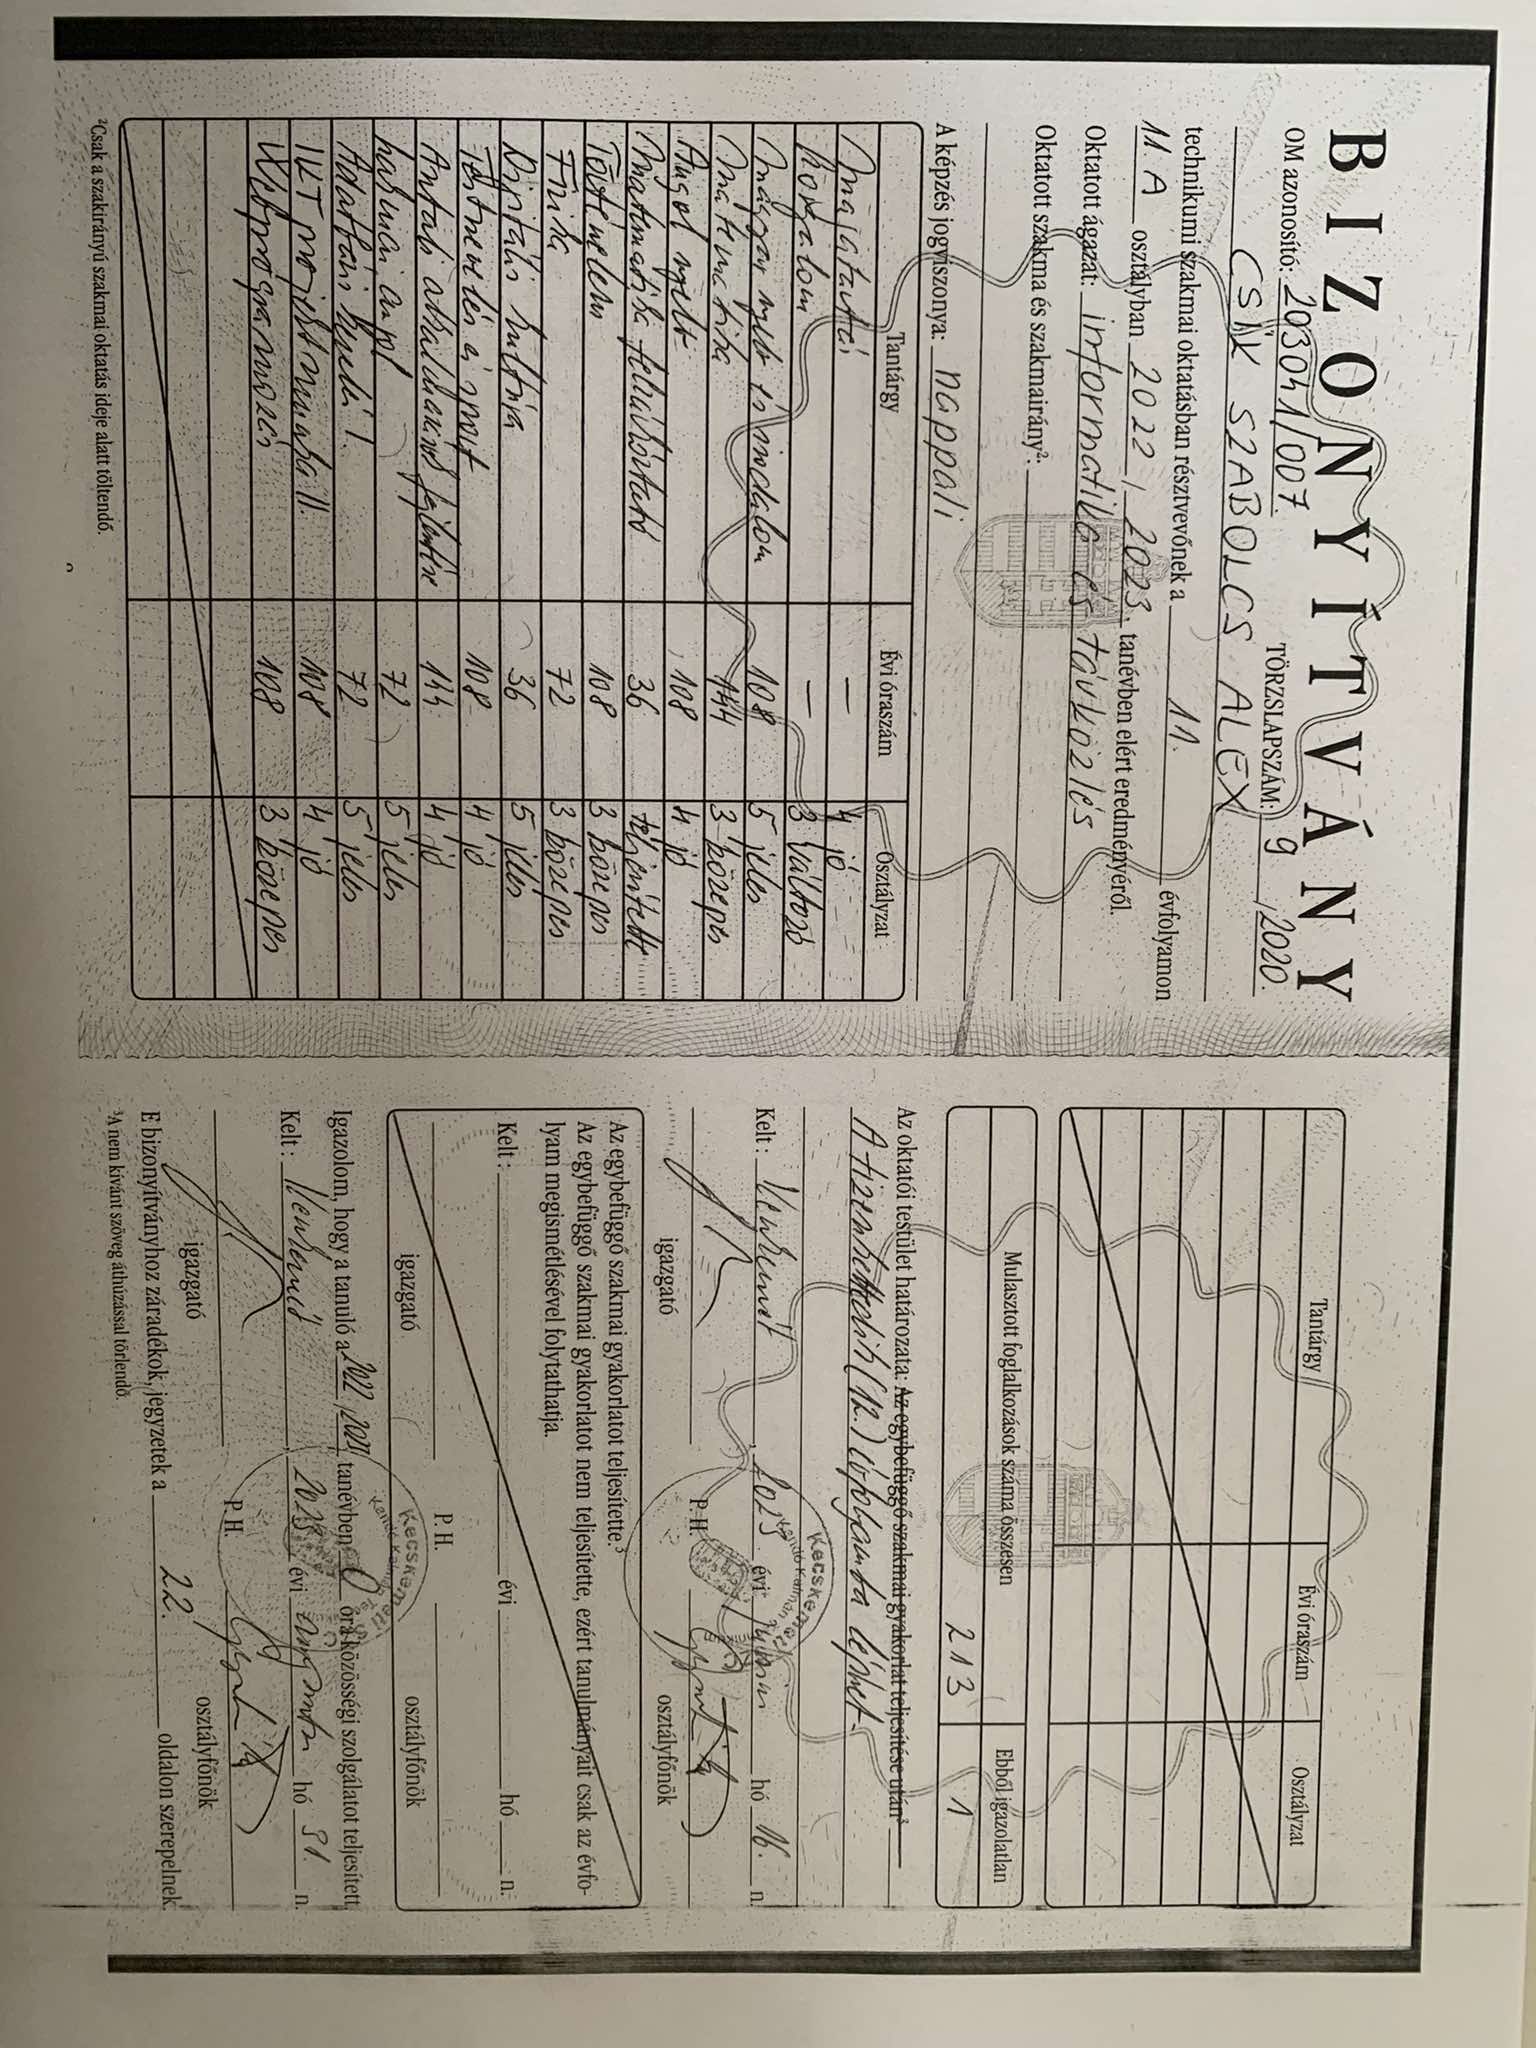 BIZONYÍTVÁNY
OM azonosító: 203041/007. TÖRZSLAPSZÁM: 9 / 2020.
CSÍK SZABOLCS ALEX
technikumi szakmai oktatásban résztvevőnek a 11. évfolyamon
11. A osztályban 2022 / 2023. tanévben elért eredményéről.
Oktatott ágazat: informatika és távközlés
Oktatott szakma és szakmairány²:
A képzés jogviszonya: nappali
Tantárgy Évi óraszám Osztályzat
Magatartás — 4 jó
Szorgalom — 3 változó
Magyar nyelv és irodalom 108 5 jeles
Matematika 144 3 közepes
Angol nyelv 108 4 jó
Matematika felzárkóztató 36 teljesített
Történelem 108 3 közepes
Fizika 72 3 közepes
Digitális kultúra 36 5 jeles
Testnevelés és sport 108 4 jó
Asztali alkalmazások fejlesztése 144 4 jó
Szakmai angol 72 5 jeles
Adatbáziskezelés I. 72 5 jeles
IKT projektmunka II. 108 4 jó
Webprogramozás 108 3 közepes
²Csak a szakirányú szakmai oktatás ideje alatt töltendő.
Tantárgy Évi óraszám Osztályzat
Mulasztott foglalkozások száma összesen Ebből igazolatlan
213 1
Az oktatói testület határozata: Az egybefüggő szakmai gyakorlat teljesítése után³
A tizenkettedik (12.) évfolyamba léphet.
Kelt: Kecskemét, 2023. évi június hó 16. n.
Kecskeméti
P. H.
igazgató osztályfőnök
Az egybefüggő szakmai gyakorlatot teljesítette.³
Az egybefüggő szakmai gyakorlatot nem teljesítette, ezért tanulmányait csak az évfo-
lyam megismétlésével folytathatja.
Kelt: , évi hó n.
P. H.
igazgató osztályfőnök
Igazolom, hogy a tanuló a 2022/2023 tanévben 0 óra közösségi szolgálatot teljesített.
Kelt: Kecskemét, 2023 évi augusztus hó 31. n.
Kecskeméti
P. H.
igazgató osztályfőnök
E bizonyítványhoz záradékok, jegyzetek a 22. oldalon szerepelnek.
³A nem kívánt szöveg áthúzással törlendő.